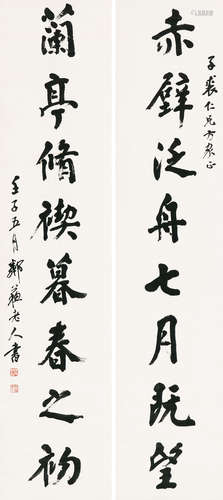 赤壁泛舟七月既望
子裳仁兄方家正
蘭亭脩禊暮春之初
壬子五月鄰蘇老人書